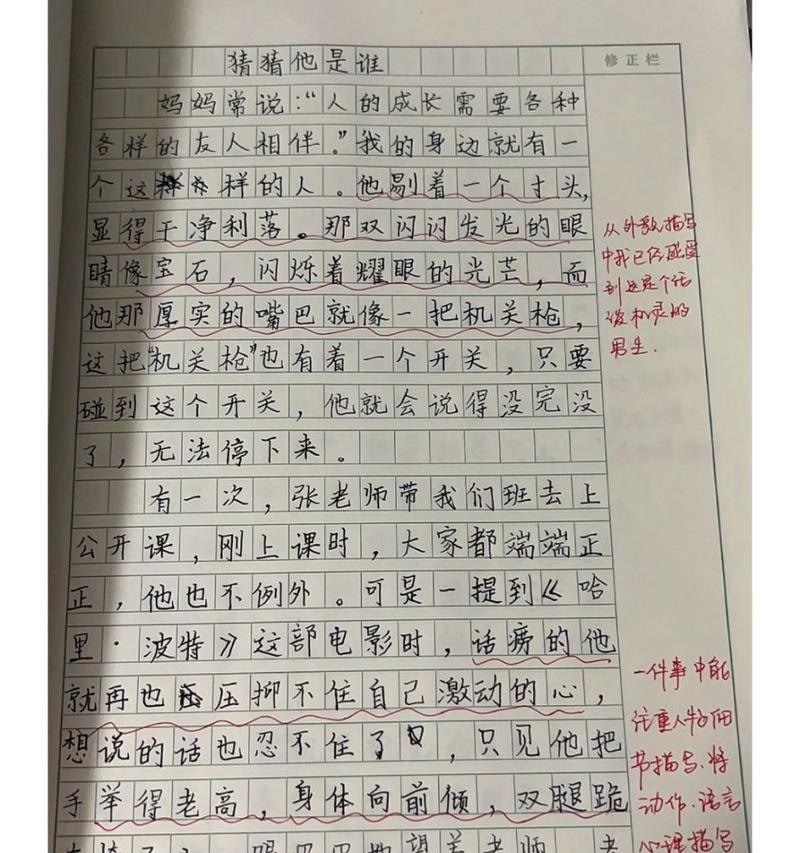 猜猜他是谁
修正栏
妈妈常说：“人的成长需要各种
各样的友人相伴。”我的身边就有一
个这样的人。他剔着一个寸头，
显得干净利落。那双闪闪发光的眼
睛像宝石，闪烁着耀眼的光芒，而
他那厚实的嘴巴就像一把机关枪，
这把“机关枪”也有着一个开关，只要
碰到这个开关，他就会说得没完没
了，无法停下来。
有一次，张老师带我们班去上
公开课，刚上课时，大家都端端正
正，他也不例外。可是一提到《哈
里·波特》这部电影时，话痨的他
就再也压抑不住自己激动的心，
想说的话也忍不住了，只见他把
手举得老高，身体向前倾，双腿跪
从外貌描写
中我已经感受
到这是个活
机灵的
男生.
一件事中能
注重人物细
节描写、将
动作、语言
心理描写